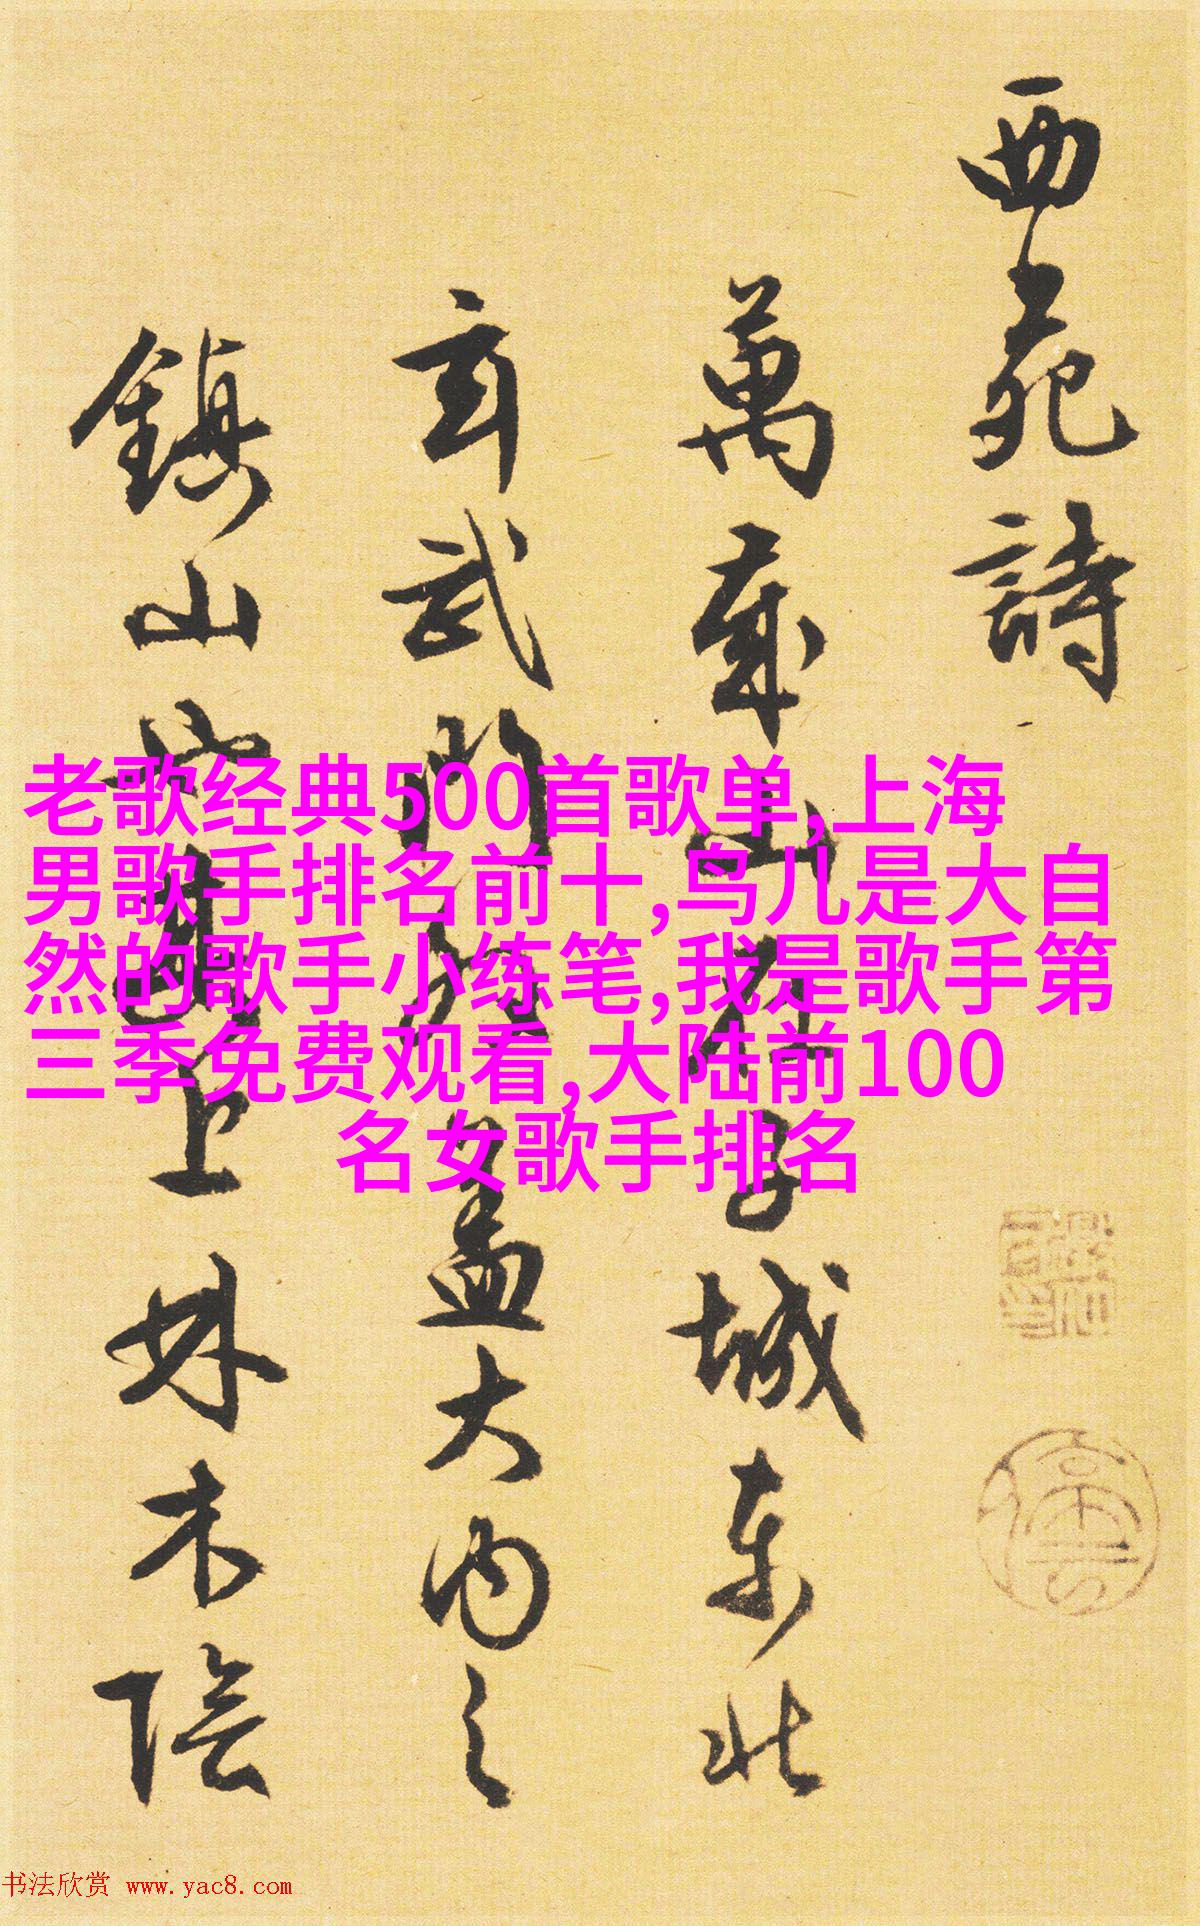 西苑詩
萬歲山在子城東北
玄武門外盖大内之
鎮山也其上林木陰
老歌经典500首歌单,上海
男歌手排名前十,鸟儿是大自
然的歌手小练笔,我是歌手第
三季免费观看,大陆前100
名女歌手排名
书法欣赏 www.yac8.com